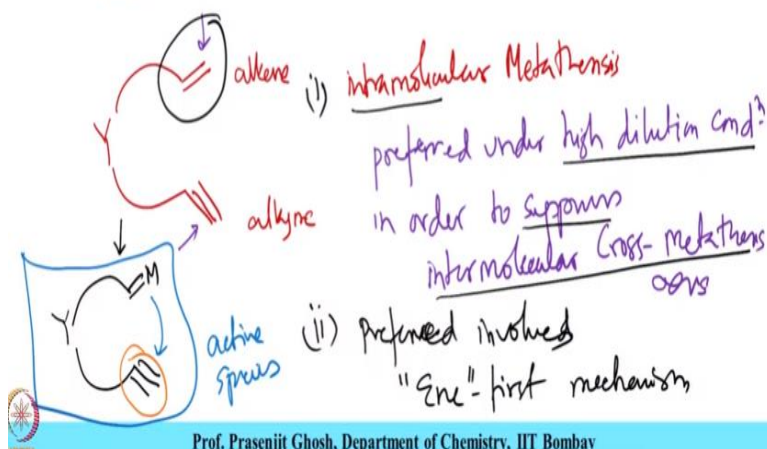 alkene
(i) intramolecular Metathesis
preferred under high dilution condⁿ
alkyne
in order to suppress
intermolecular Cross-metathesis
Y
M
Y
active
species
(ii) preferred involves
"Ene"-first mechanism
Prof. Prasenjit Ghosh, Department of Chemistry, IIT Bombay